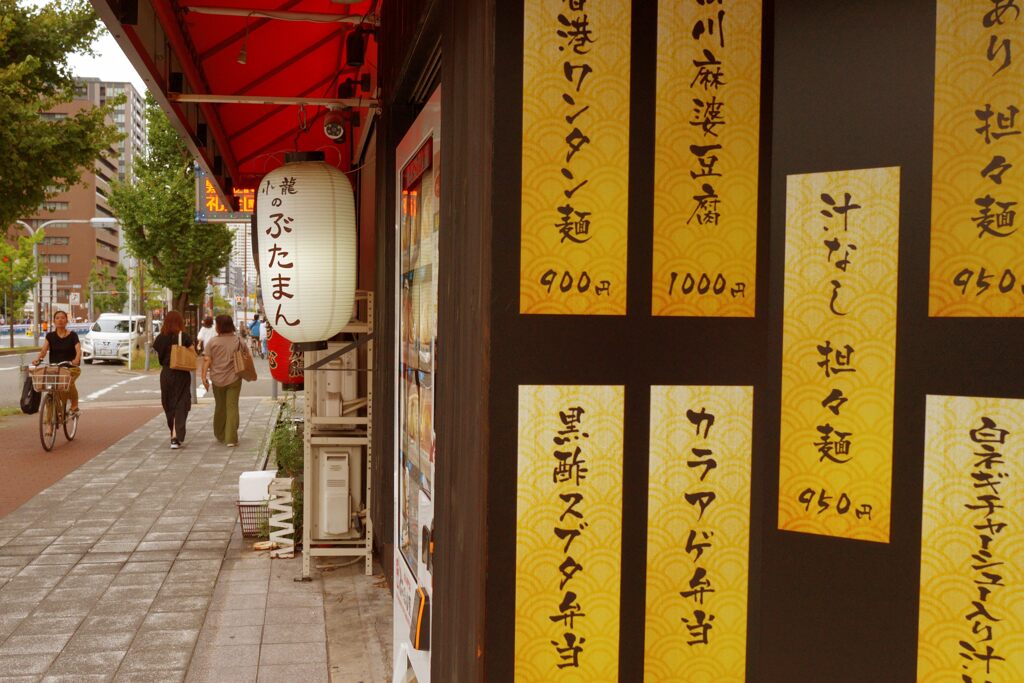 香港ワンタン麺
900円
川麻婆豆腐
1000円
汁なし 担々麺
950円
あり 担々麺
950円
黒酢スブタ弁当
カラアゲ弁当
白ネギチャーシュー入り汁
小龍の
ぶたまん